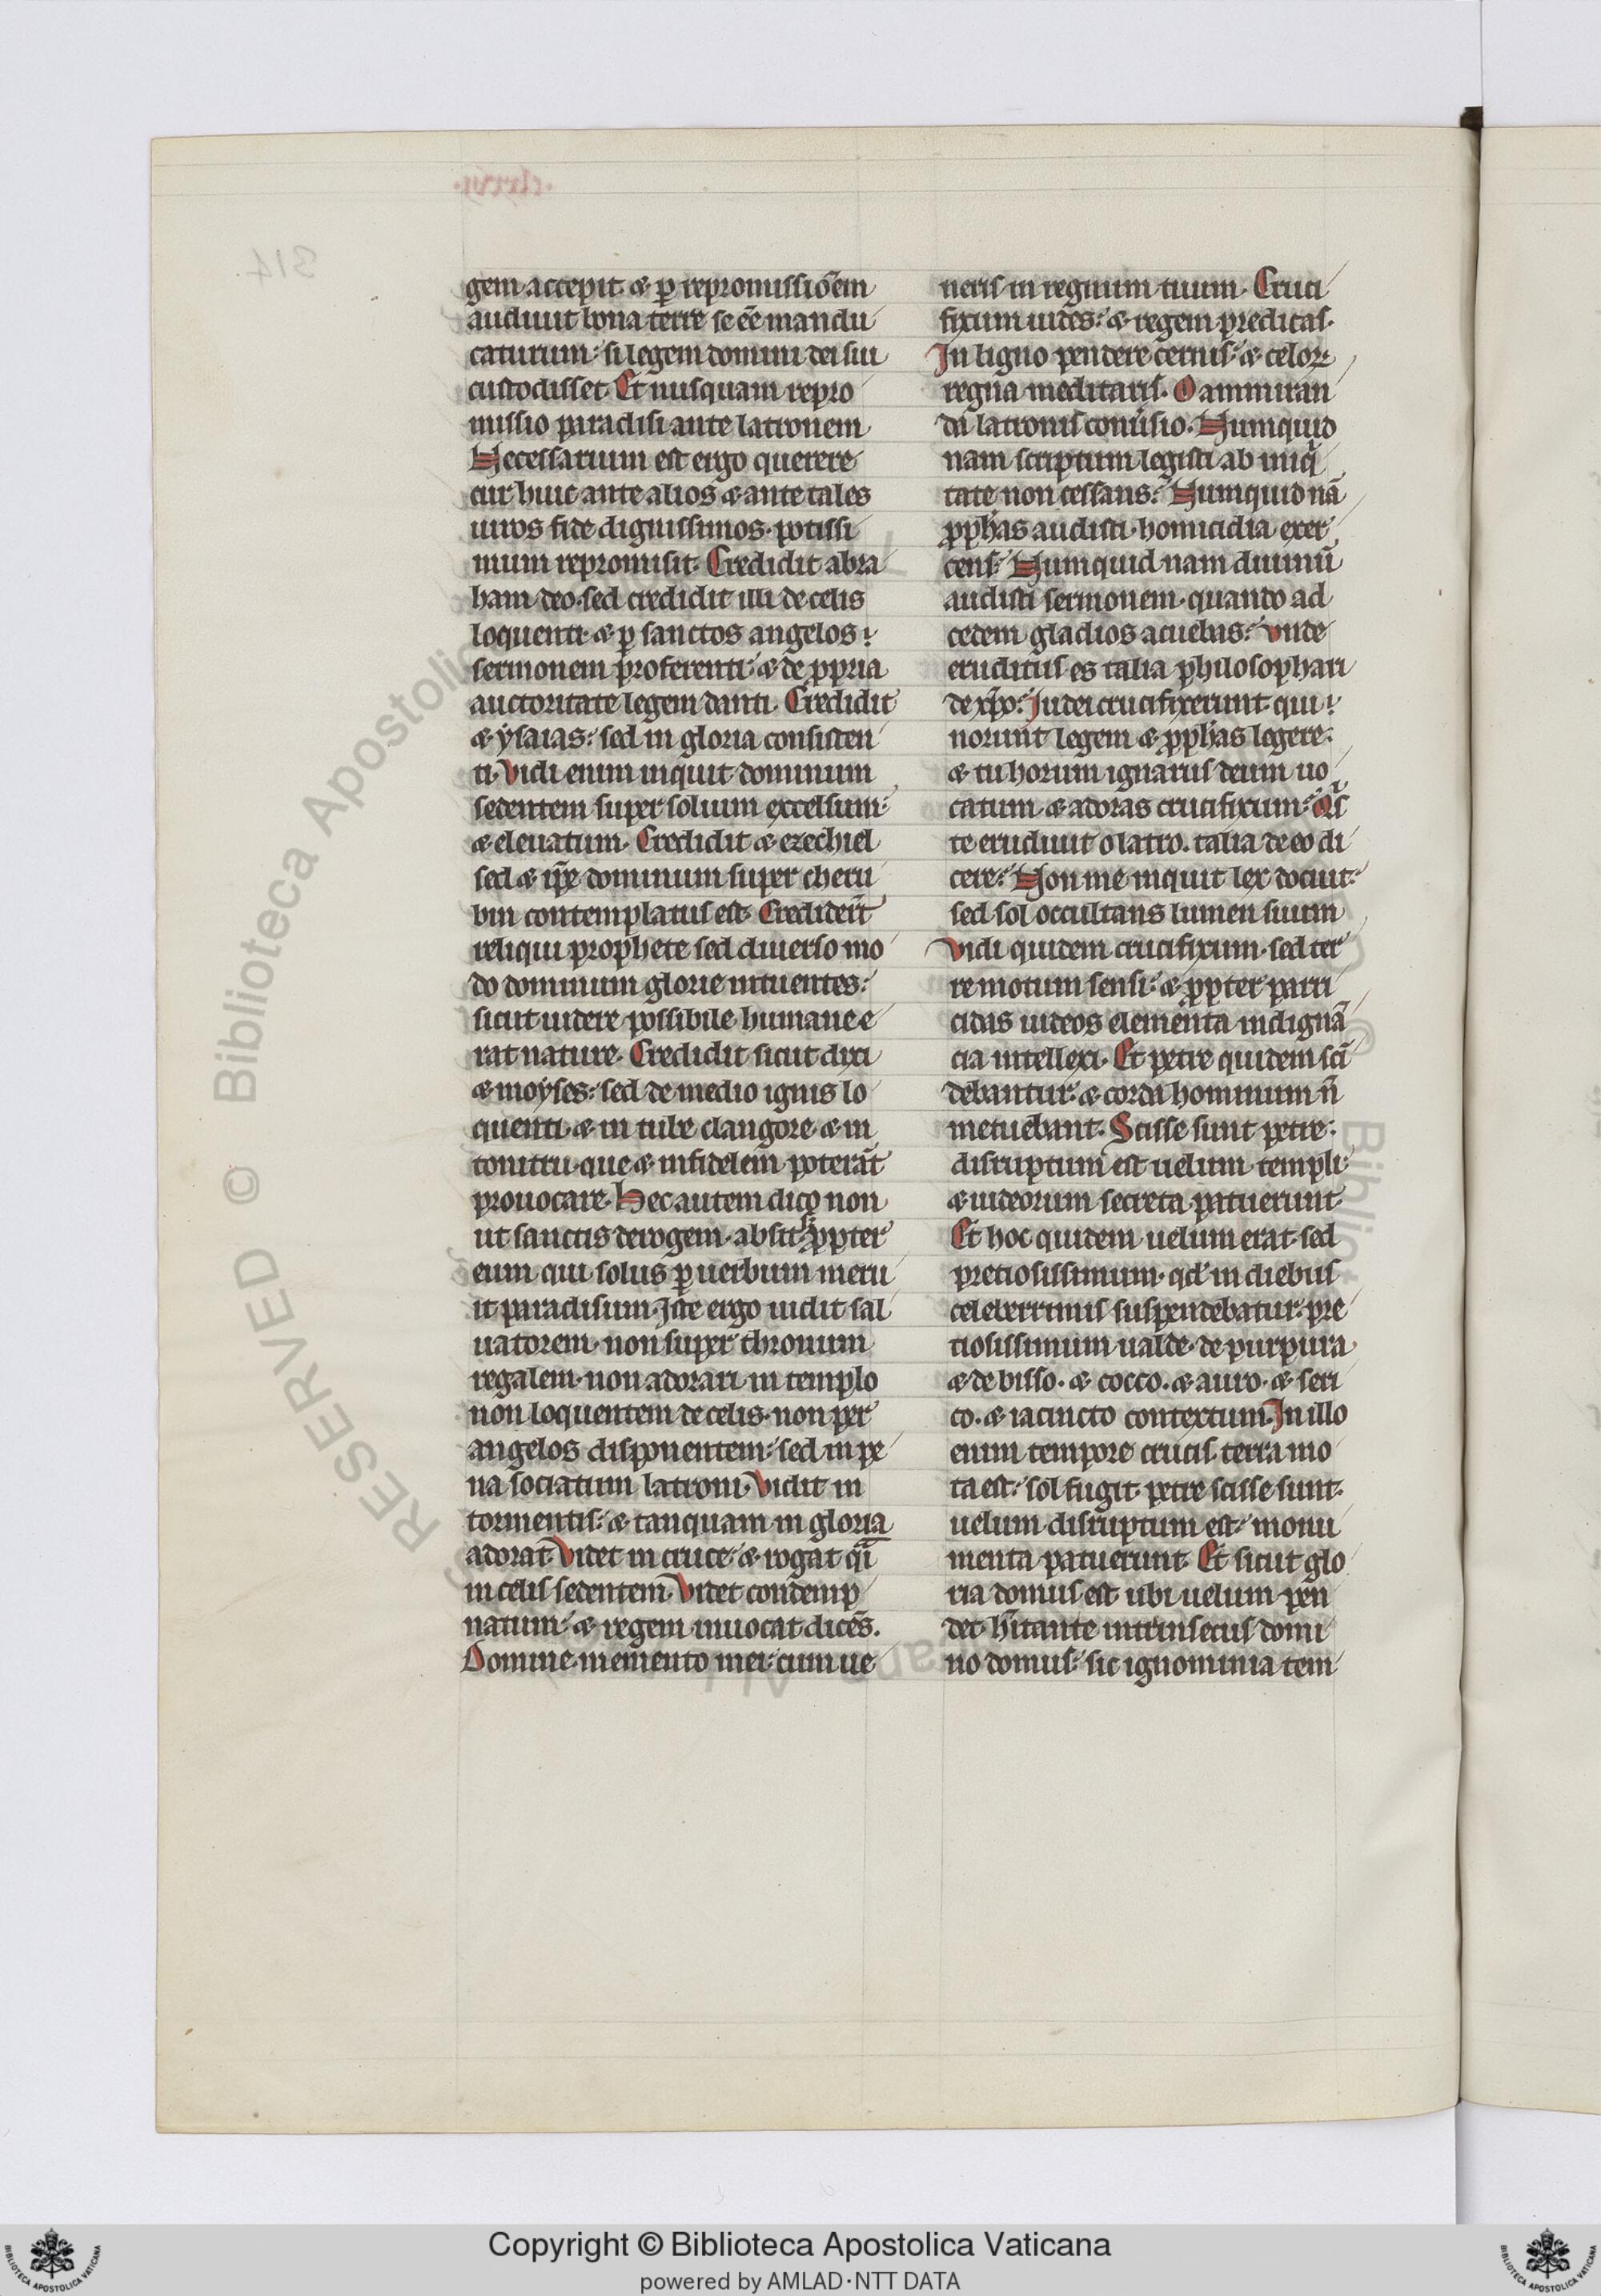 gem accepit. ⁊ ꝑ repromissiōem
audiuit bona terre se eē mandu
caturum: si legem domini dei sui
custodisset. Et nusquam repro
missio paradisi ante latronem.
Necessarium est ergo querere
cur huic ante alios ⁊ ante tales
uiros fide dignissimos. potissi
mum repromisit. Credidit abra
ham deo. sed credidit illi de celis
loquenti. ⁊ ꝑ sanctos angelos:
sermonem proferenti: ⁊ de ꝓpria
auctoritate legem danti. Credidit
⁊ ysaias: sed in gloria consisten
ti. Vidi enim inquit dominum
sedentem super solium excelsum:
⁊ eleuatum. Credidit ⁊ ezechiel
sed ⁊ ip̄e dominum super cheru
bin contemplatus est. Crediderūt
reliqui prophete sed diuerso mo
do dominum glorie intuentes:
sicut uidere possibile humane e
rat nature. Credidit sicut dixi
⁊ moyses: sed de medio ignis lo
quenti. ⁊ in tube clangore ⁊ in
tonitru. que ⁊ infidelem poterāt
prouocare. Hec autem dico non
ut sanctis derogem. absit. ꝓpter
eum qui solus ꝑ uerbum meru
it paradisum. Iste ergo uidit sal
uatorem. non super thronum
regalem. non adorari in templo
non loquentem de celis. non per
angelos disponentem: sed in pe
na sociatum latroni. Vidit in
tormentis: ⁊ tanquam in gloria
adorat. Videt in cruce: ⁊ rogat q̄i
in celis sedentem. Videt condemp
natum: ⁊ regem inuocat dicēs.
Domine memento mei: cum ue
neris in regnum tuum. Cruci
fixum uides: ⁊ regem predicas.
In ligno pendere cernis: ⁊ celoꝝ
regna meditaris. O ammiran
da latronis conu̾sio. Numquid
nam scriptum legisti ab iniq̇
tate non cessans: Numquid nā
ꝓph̄as audisti. homicidia exer
cens: Numquid nam diuinū
audisti sermonem. quando ad
cedem gladios acuebas: Vnde
eruditus es talia philosophari
de xp̄o: Iudei crucifixerunt qui:
norunt legem ⁊ ꝓph̄as legere:
⁊ tu horum ignarus deum uo
catum. ⁊ adoras crucifixum: Qis
te erudiuit o latro. talia de eo di
cere: Non me inquit lex docuit:
sed sol occultans lumen suum
Vidi quidem crucifixum. sed ter
re motum sensi: ⁊ ꝓpter parri
cidas iudeos elementa indignā
cia intellexi. Et petre quidem sci
debantur: ⁊ corda hominum n̄
metuebant. Scisse sunt petre:
disruptum est uelum templi:
⁊ iudeorum secreta patuerunt.
Et hoc quidem uelum erat sed
preciosissimum. qd̓ in diebus
celeberrimis suspendebatur: pre
ciosissimum ualde. de purpura
⁊ de bisso. ⁊ cocco. ⁊ auro. ⁊ seri
co. ⁊ iacincto contextum. In illo
enim tempore crucis. terra mo
ta est: sol fugit. petre scisse sunt.
uelum disruptum est: monu
menta patuerunt. Et sicut glo
ria domus est ubi uelum pen
det. h̄itante intrinsecus domi
no domus: sic ignominia tem
314
Copyright © Biblioteca Apostolica Vaticana
powered by AMLAD·NTT DATA